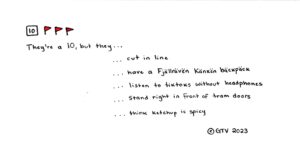 10
They're a 10, but they...
... cut in line
... have a Fjällräven Kånkän bäckpäck
... listen to tiktoks without headphones
... stand right in front of tram doors
... think ketchup is spicy
© GTV 2023